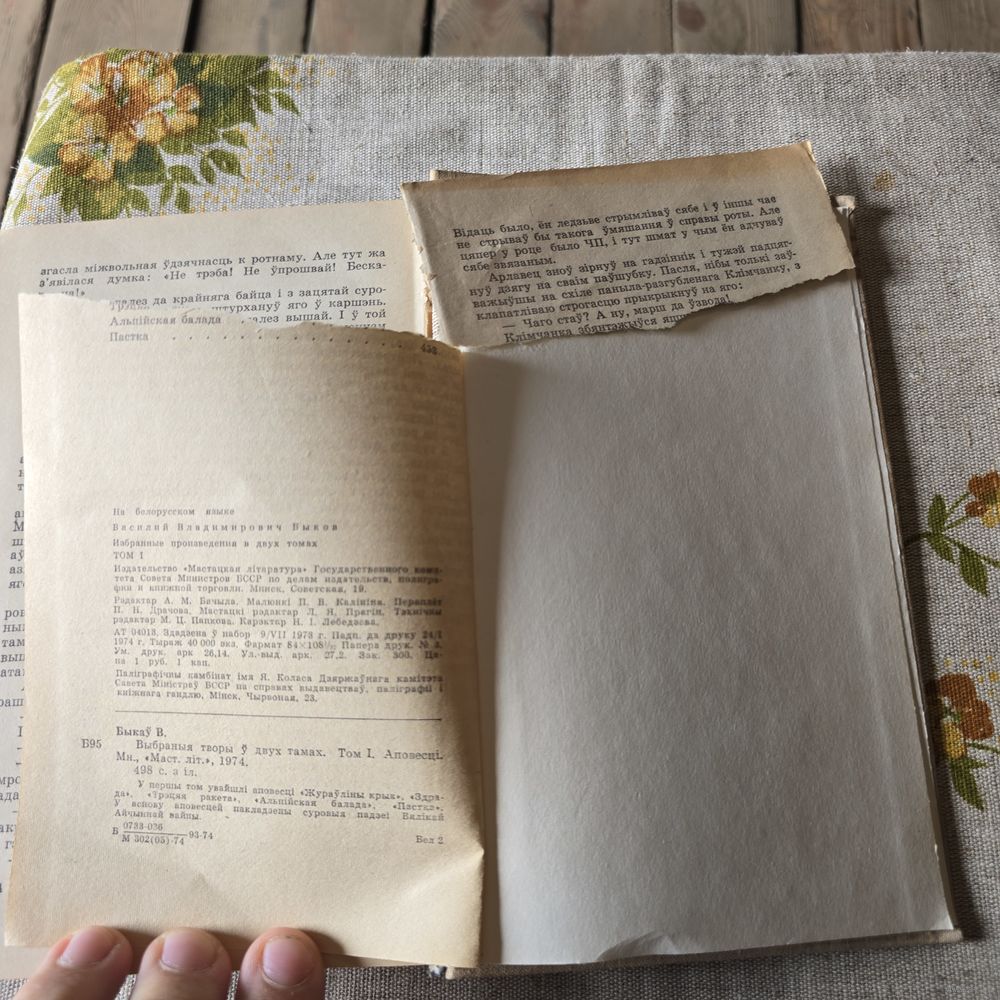 Відаць было, ён ледзьве стрымліваў сябе і ў іншы час
не стрываў бы такога ўмяшання ў справы роты. Але
цяпер у роце было ЧП, і тут шмат у чым ён адчуваў
сябе звязаным.
Арлавец зноў зірнуў на гадзіннік і тужэй падцяг-
нуў дзягу на сваім паўшубку. Пасля, нібы толькі заў-
важыўшы на схіле паныла-разгубленага Клімчанку, з
клапатліваю строгасцю прыкрыкнуў на яго:
— Чаго стаў? А ну, марш да ўзвода!
Клімчанка
агасла міжвольная ўдзячнасць к ротнаму. Але тут жа
з'явілася думка: «Не трэба! Не ўпрошвай! Беска-
да крайняга байца і з зацятай суро-
штурхануў яго ў каршэнь.
Альпійская балада вышай. І ў той
Пастка 453
На белорусском языке
Василий Владимирович Быков
Избранные произведения в двух томах
ТОМ I
Издательство «Мастацкая літаратура» Государственного коми-
тета Совета Министров БССР по делам издательств, полигра-
фии и книжной торговли. Минск, Советская, 19.
Рэдактар А. М. Бачыла. Малюнкі П. В. Калініна. Пераплёт
П. Н. Драчова. Мастацкі рэдактар Л. Я. Прагін. Тэхнічны
рэдактар М. Ц. Папкова. Карэктар Н. І. Лебедзева.
АТ 04013. Здадзена ў набор 9/VII 1973 г. Падп. да друку 24/I
1974 г. Тыраж 40 000 экз. Фармат 84×108¹/₃₂ Папера друк. № 3.
Ум. друк. арк 26,14. Ул.-выд. арк. 27,2. Зак. 300. Цэ-
на 1 руб. 1 кап.
Паліграфічны камбінат імя Я. Коласа Дзяржаўнага камітэта
Савета Міністраў БССР па справах выдавецтваў, паліграфіі і
кніжнага гандлю, Мінск, Чырвоная, 23.
Быкаў В.
Б95 Выбраныя творы ў двух тамах. Том І. Аповесці.
Мн., «Маст. літ.», 1974.
498 с. з іл.
У першы том увайшлі аповесці «Жураўліны крык», «Здра-
да», «Трэцяя ракета», «Альпійская балада», «Пастка».
У аснову аповесцей пакладзены суровыя падзеі Вялікай
Айчыннай вайны.
Б 0733-036
М 302(05)-74 93-74 Бел 2